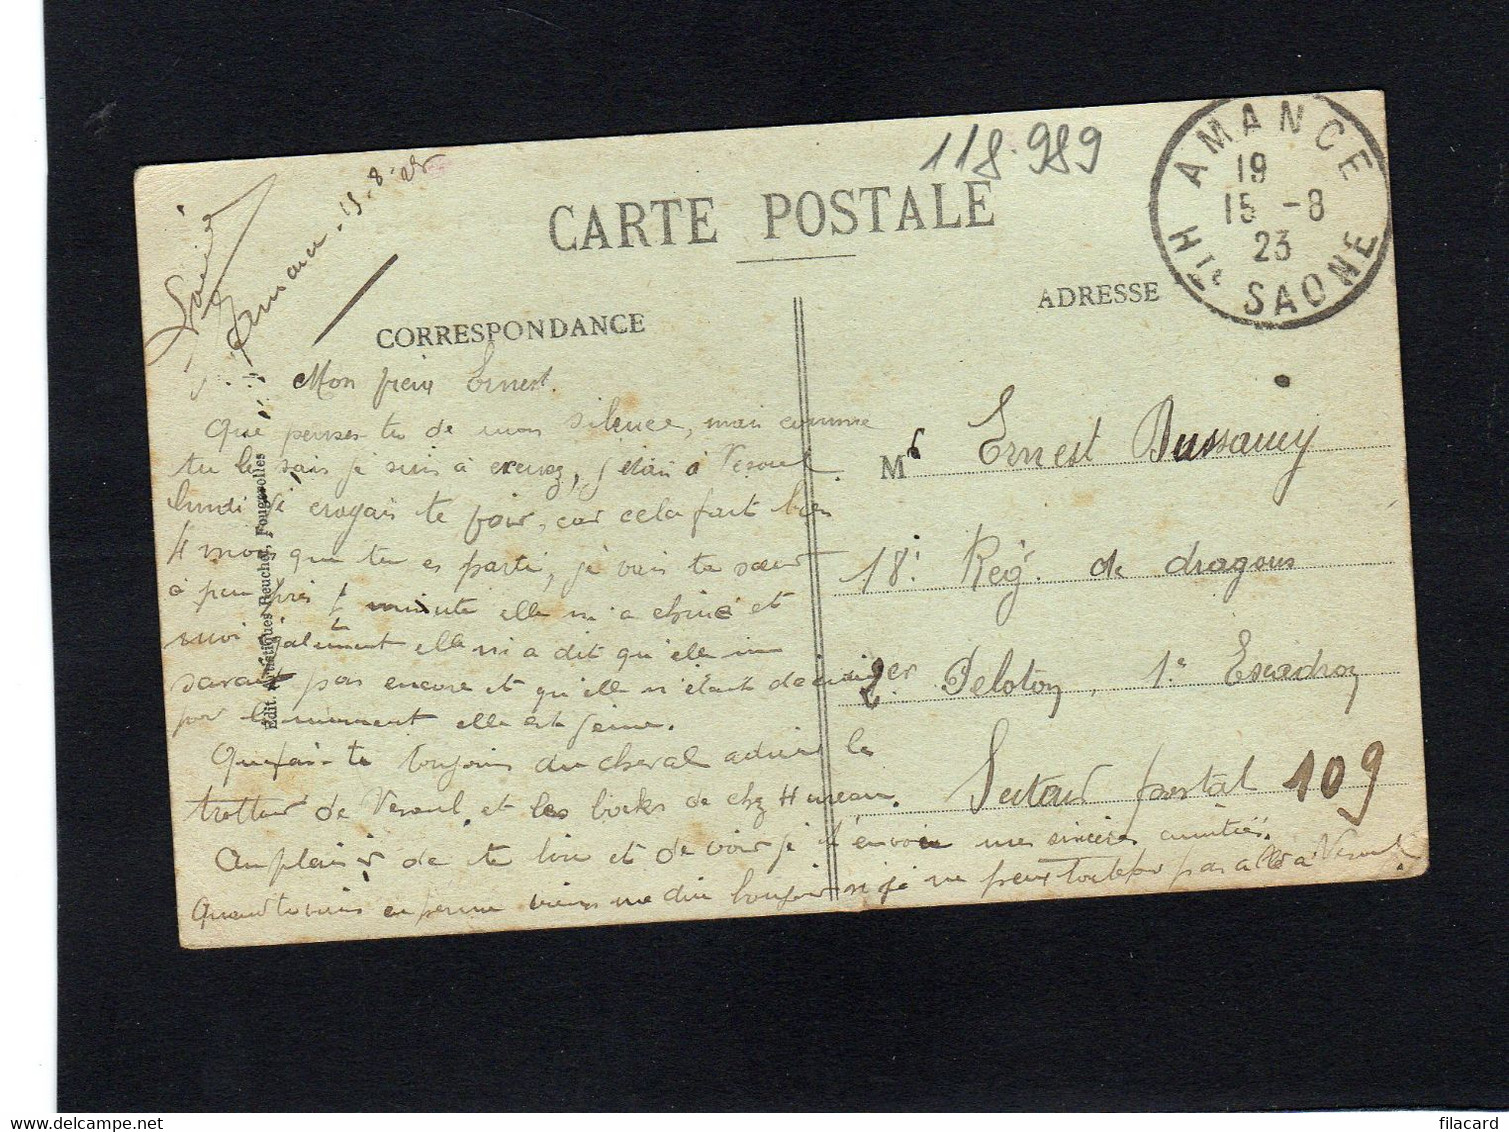 118.989
CARTE POSTALE
AMANCE
19
15 -8
23
Hte SAONE
Amance. 15.8.23
CORRESPONDANCE
ADRESSE
Mon vieux Ernest.
Que penses tu de mon silence, mais comme
tu le sais je suis à, j'étais à Vesoul
lundi je croyais te voir, car cela fait bien
4 mois que tu es parti, je vais ta sœur
à peu près 1 minute elle m'a et
moi également elle m'a dit qu'elle ne
savait pas encore et qu'elle n'était
par le moment elle est jeune.
Que fais-tu toujours du cheval adieu le
trottoir de Vesoul et les bocks de chez Hureau.
Au plaisir de te lire et de voir je t'envoie mes sincères amitiés.
Quand tu viens en perme viens me dire bonjour si je ne peux toutefois pas aller à Vesoul.
Edit. Artistiques Reuchet, Fougerolles
Mr Ernest Bussamey
18e Rég. de dragons
2er Peloton, 1e Escadron
Secteur postal 109
filacard